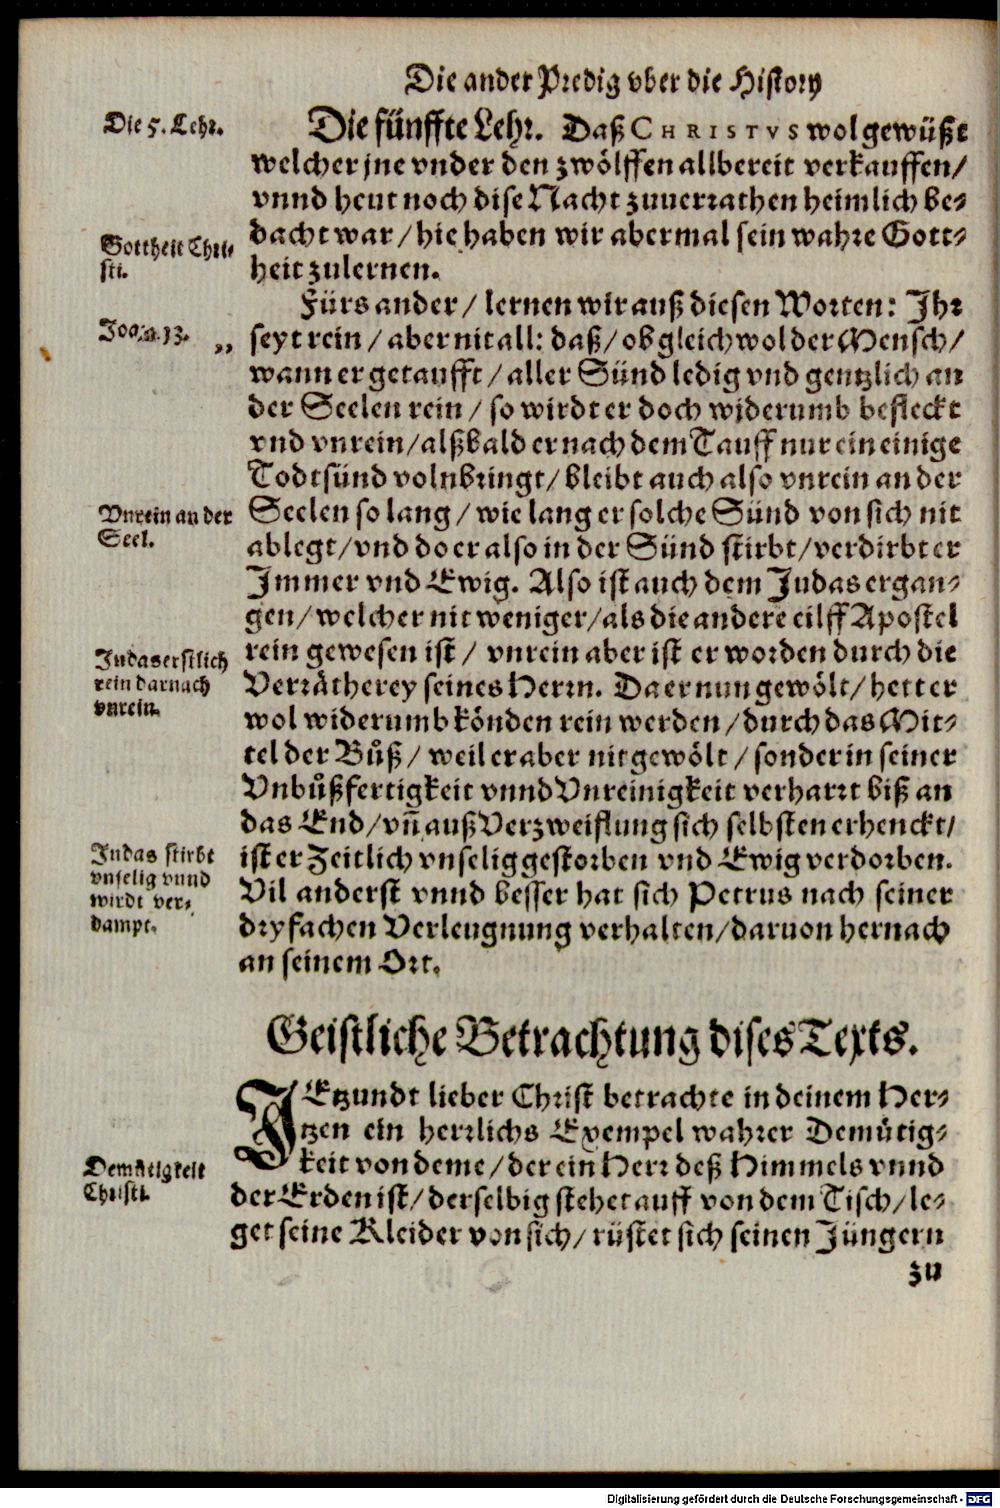 Die ander Predig vber die History
Die 5. Lehr.
Die fünffte Lehr. Daß CHRISTVS wol gewüßt
welcher jne vnder den zwölffen allbereit verkauffen/
vnnd heut noch dise Nacht zuuerrathen heimlich be-
dacht war/ hie haben wir abermal sein wahre Gott-
heit zulernen.
Gottheit Chri-
sti.
Fürs ander/ lernen wir auß diesen Worten: Ihr
Joan. 13. „
seyt rein/ aber nit all: daß/ ob gleichwol der Mensch/
wann er getaufft/ aller Sünd ledig vnd gentzlich an
der Seelen rein/ so wirdt er doch widerumb befleckt
vnd vnrein/ alßbald er nach dem Tauff nur ein einige
Todtsünd volnbringt/ bleibt auch also vnrein an der
Vnrein an der
Seel.
Seelen so lang/ wie lang er solche Sünd von sich nit
ablegt/ vnd do er also in der Sünd stirbt/ verdirbt er
Immer vnd Ewig. Also ist auch dem Judas ergan-
gen/ welcher nit weniger/ als die andere eilff Apostel
Judas erstlich
rein darnach
vnrein.
rein gewesen ist/ vnrein aber ist er worden durch die
Verrätherey seines Herrn. Da er nun gewölt/ hett er
wol widerumb könden rein werden/ durch das Mit-
tel der Bůß/ weil er aber nit gewölt/ sonder in seiner
Vnbůßfertigkeit vnnd Vnreinigkeit verharrt biß an
das End/ vñ auß Verzweiflung sich selbsten erhenckt/
Judas stirbt
vnselig vnnd
wirdt ver-
dampt.
ist er Zeitlich vnselig gestorben vnd Ewig verdorben.
Vil anderst vnnd besser hat sich Petrus nach seiner
dryfachen Verleugnung verhalten/ daruon hernach
an seinem Ort.
Geistliche Betrachtung dises Texts.
JEtzundt lieber Christ betrachte in deinem Her-
tzen ein herrlichs Exempel wahrer Demütig-
Demütigkeit
Christi.
keit von deme/ der ein Herr deß Himmels vnnd
der Erden ist/ derselbig stehet auff von dem Tisch/ le-
get seine Kleider von sich/ rüstet sich seinen Jüngern
zu
Digitalisierung gefördert durch die Deutsche Forschungsgemeinschaft - DFG